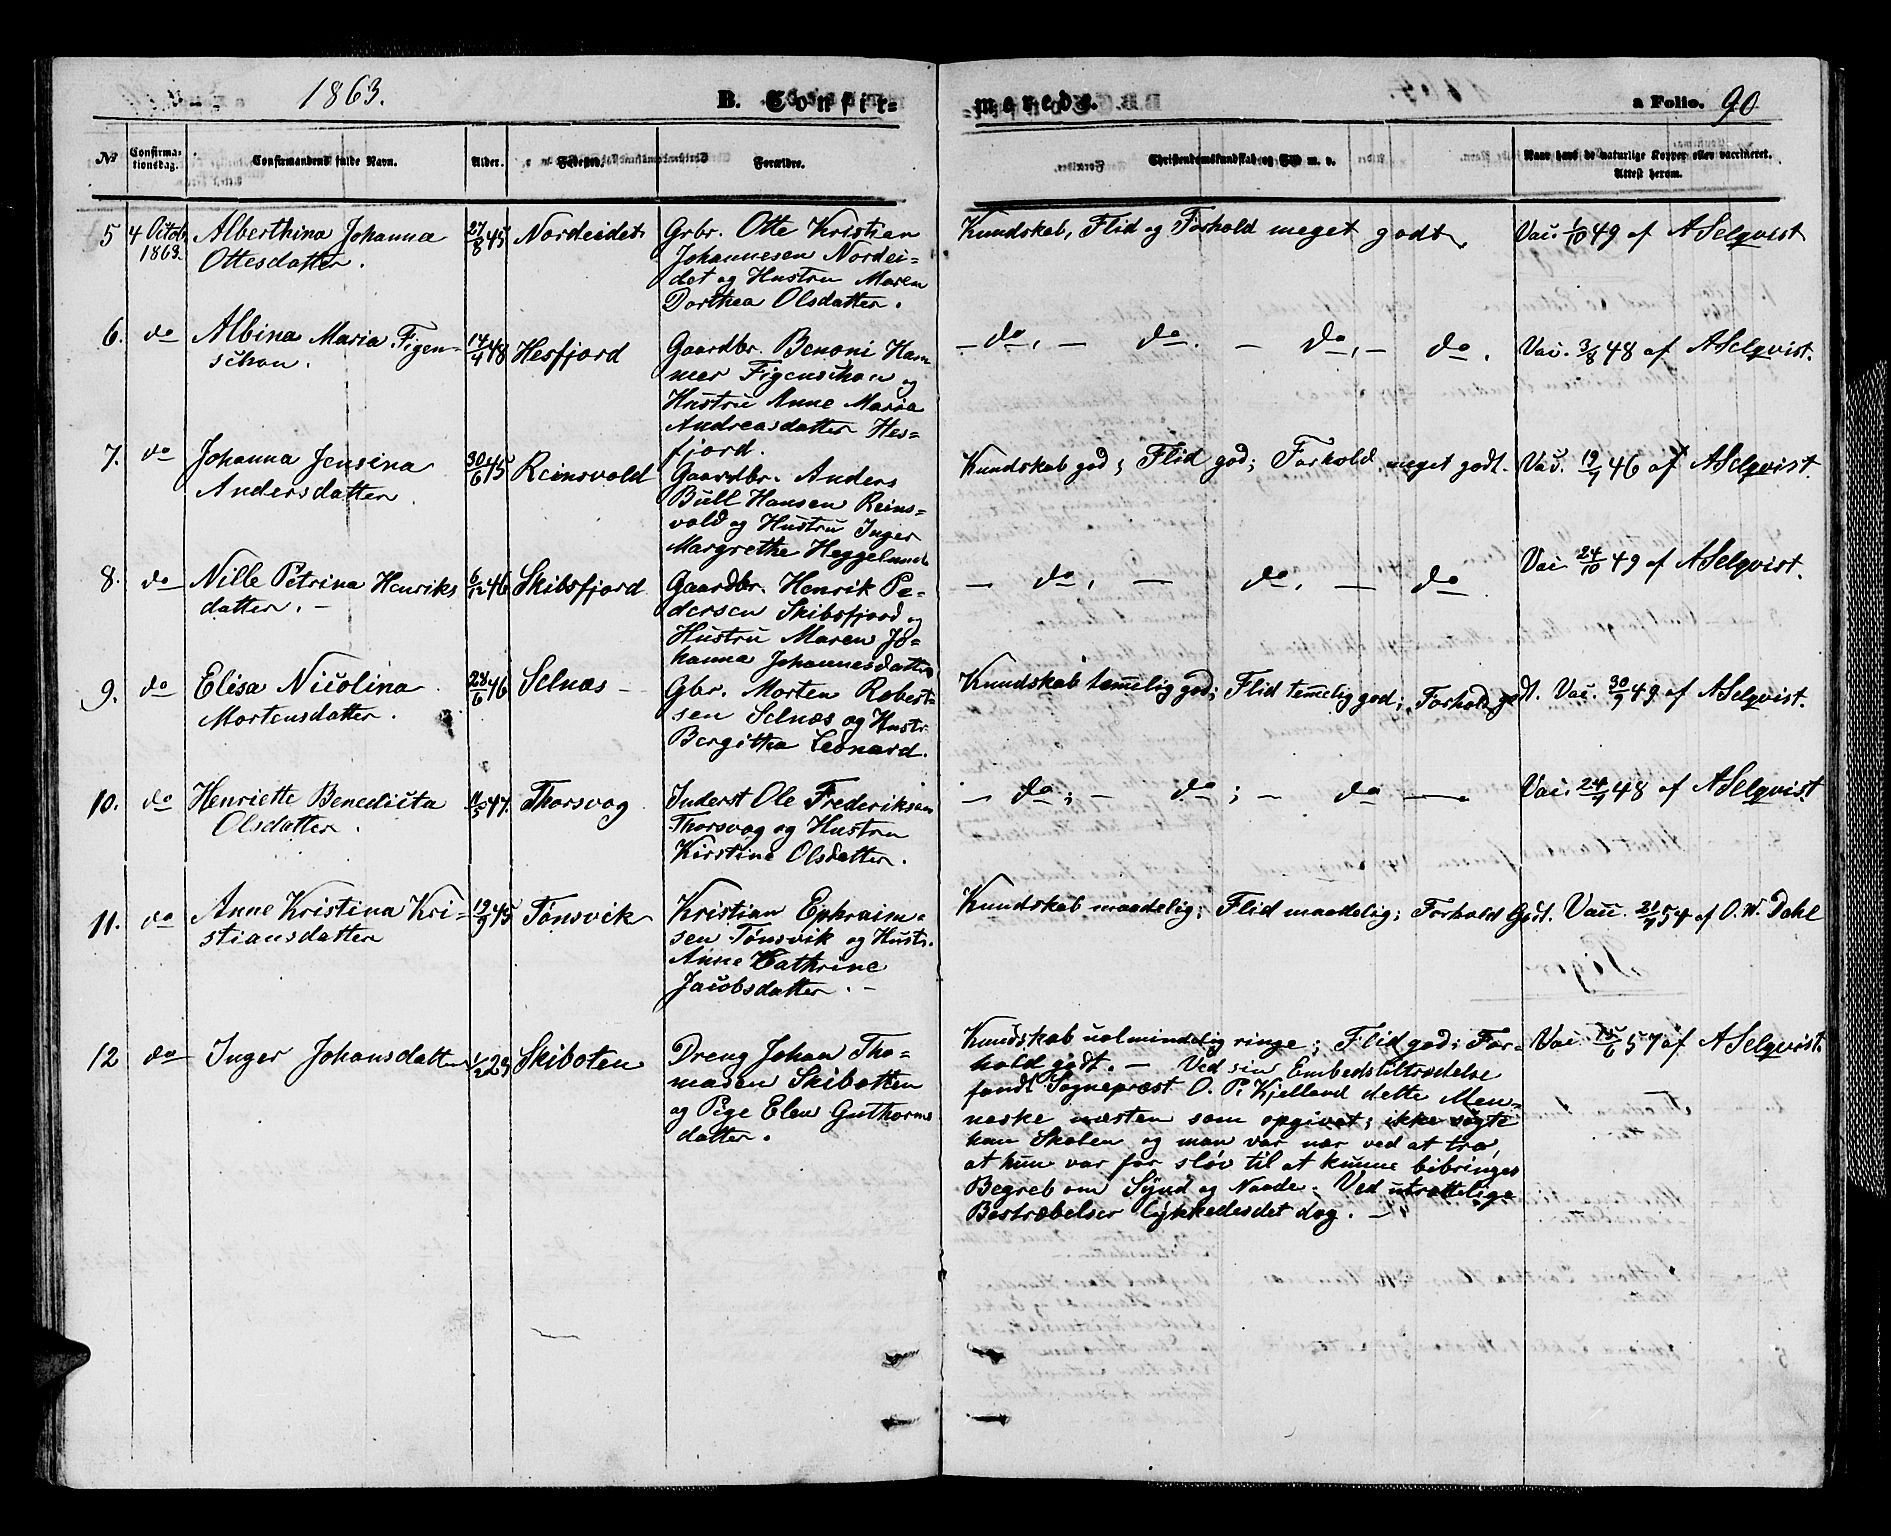 1863.
B. Confir=
marede.
a Folio. 90
No
Confirma-
tionsdag.
Confirmandens fulde Navn.
Alder.
Fødested.
Forældre.
Christendomskundskab og Flid m. v.
Naar havt de naturlige Kopper eller vaccineret.
Attest herom.
5 4 Octob. 1863. Alberthina Johanna
Ottesdatter.
27/8 45 Nordeidet
Grbr. Otte Kristian
Johannesen Nordei=
det og Hustru Maren
Dorthea Olsdatter.
Kundskab, Flid og Forhold meget godt.
Vac. 1/10 49 af A Selqvist
6. do Albina Maria Figen=
schou.
14/4 48 Hesfjord
Gaardbr. Benoni Ham=
mer Figenschou og
Hustru Anne Maria
Andreasdatter Hes=
fjord.
— do, — do. — do, — do.
Vac. 3/8 48 af A Selqvist.
7. do Johanna Jensina
Andersdatter.
30/6 45 Reinsvold
Gaardbr. Anders
Bull Hansen Reins=
vold og Hustru Inger
Margrethe Heggelund
Kundskab god; Flid god; Forhold meget godt.
Vac. 19/7 46 af A Selqvist.
8. do Nille Petrina Henriks
datter. —
6/12 46 Skibsfjord
Gaardbr. Henrik Pe=
dersen Skibsfjord og
Hustru Maren Jo=
hanna Johannesdatter
— do, — do, — do
Vac. 24/10 49 af A Selqvist.
9. do Elisa Nicolina
Mortensdatter.
28/6 46 Selnæs —
Gbr. Morten Robert=
sen Selnæs og Hustr.
Bergitha Leonard.
Kundskab temelig god; Flid temelig god; Forhold godt.
Vac. 30/9 49 af A Selqvist.
10. do Henriette Benedicta
Olsdatter.
11/5 47. Thorsvag
Inderst Ole Frederiksen
Thorsvag og Hustru
Kirstine Olsdatter.
— do; — do; — do —
Vac. 24/9 48 af A Selqvist.
11. do Anne Kristina Kri=
stiansdatter
19/9 45 Tønsvik
Kristian Ephraim=
sen Tønsvik og Hustr.
Anne Kathrine
Jacobsdatter. —
Kundskab maadelig; Flid maadelig; Forhold Godt.
Vacc. 21/7 54 af O. W. Dahl
12 do Inger Johansdatter
1/2 29 Skiboten
Dreng Johan Tho=
masen Skibotten
og Pige Elen Guthorms
datter.
Kundskab ualmindelig ringe; Flid god; For=
hold godt. — Ved sin Embedstiltrædelse
fandt Sognepræst O. P. Kjelland dette Men=
neske næsten som opgivet; ikke søgte
hun Skolen og man var nær ved at tro,
at hun var for sløv til at kunne bibringes
Begreb om Synd og Naade. Ved utrættelige
Bestræbelser lykkedes det dog. —
Vac. 15/6 57 af A Selqvist.